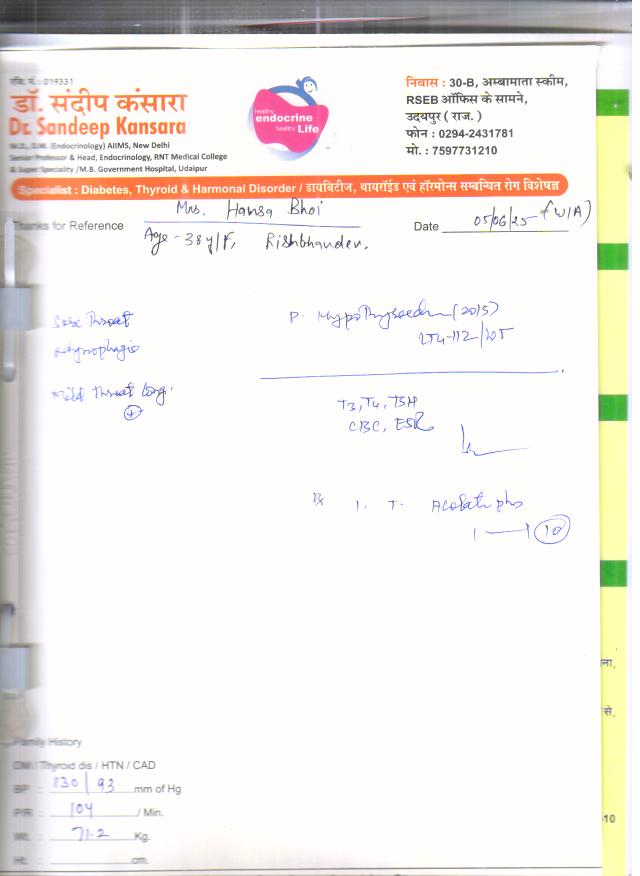 रजि. नं. : 019331
डॉ. संदीप कंसारा
Dr. Sandeep Kansara
M.D., D.M. (Endocrinology) AIIMS, New Delhi
Senior Professor & Head, Endocrinology, RNT Medical College
& Super Speciality /M.B. Government Hospital, Udaipur
healthy
endocrine
healthy Life
निवास : 30-B, अम्बामाता स्कीम,
RSEB ऑफिस के सामने,
उदयपुर ( राज. )
फोन : 0294-2431781
मो. : 7597731210
Specialist : Diabetes, Thyroid & Harmonal Disorder / डायबिटीज, थायरॉईड एवं हॉरमोन्स सम्बन्धित रोग विशेषज्ञ
Thanks for Reference Mrs. Hansa Bhoi
Date 05/06/25
Age - 38y/F, Rishbhandev.
Sore Throat
Mild Throat
+
(2015)
T3, T4, TSH
CBC, ESR
Rx 1. T.
1 — 1 10
ना,
से,
10
Family History
DM / Thyroid dis / HTN / CAD
BP : 130/93 mm of Hg
P/R : 104 / Min.
Wt. : 71.2 Kg.
Ht. : cm.